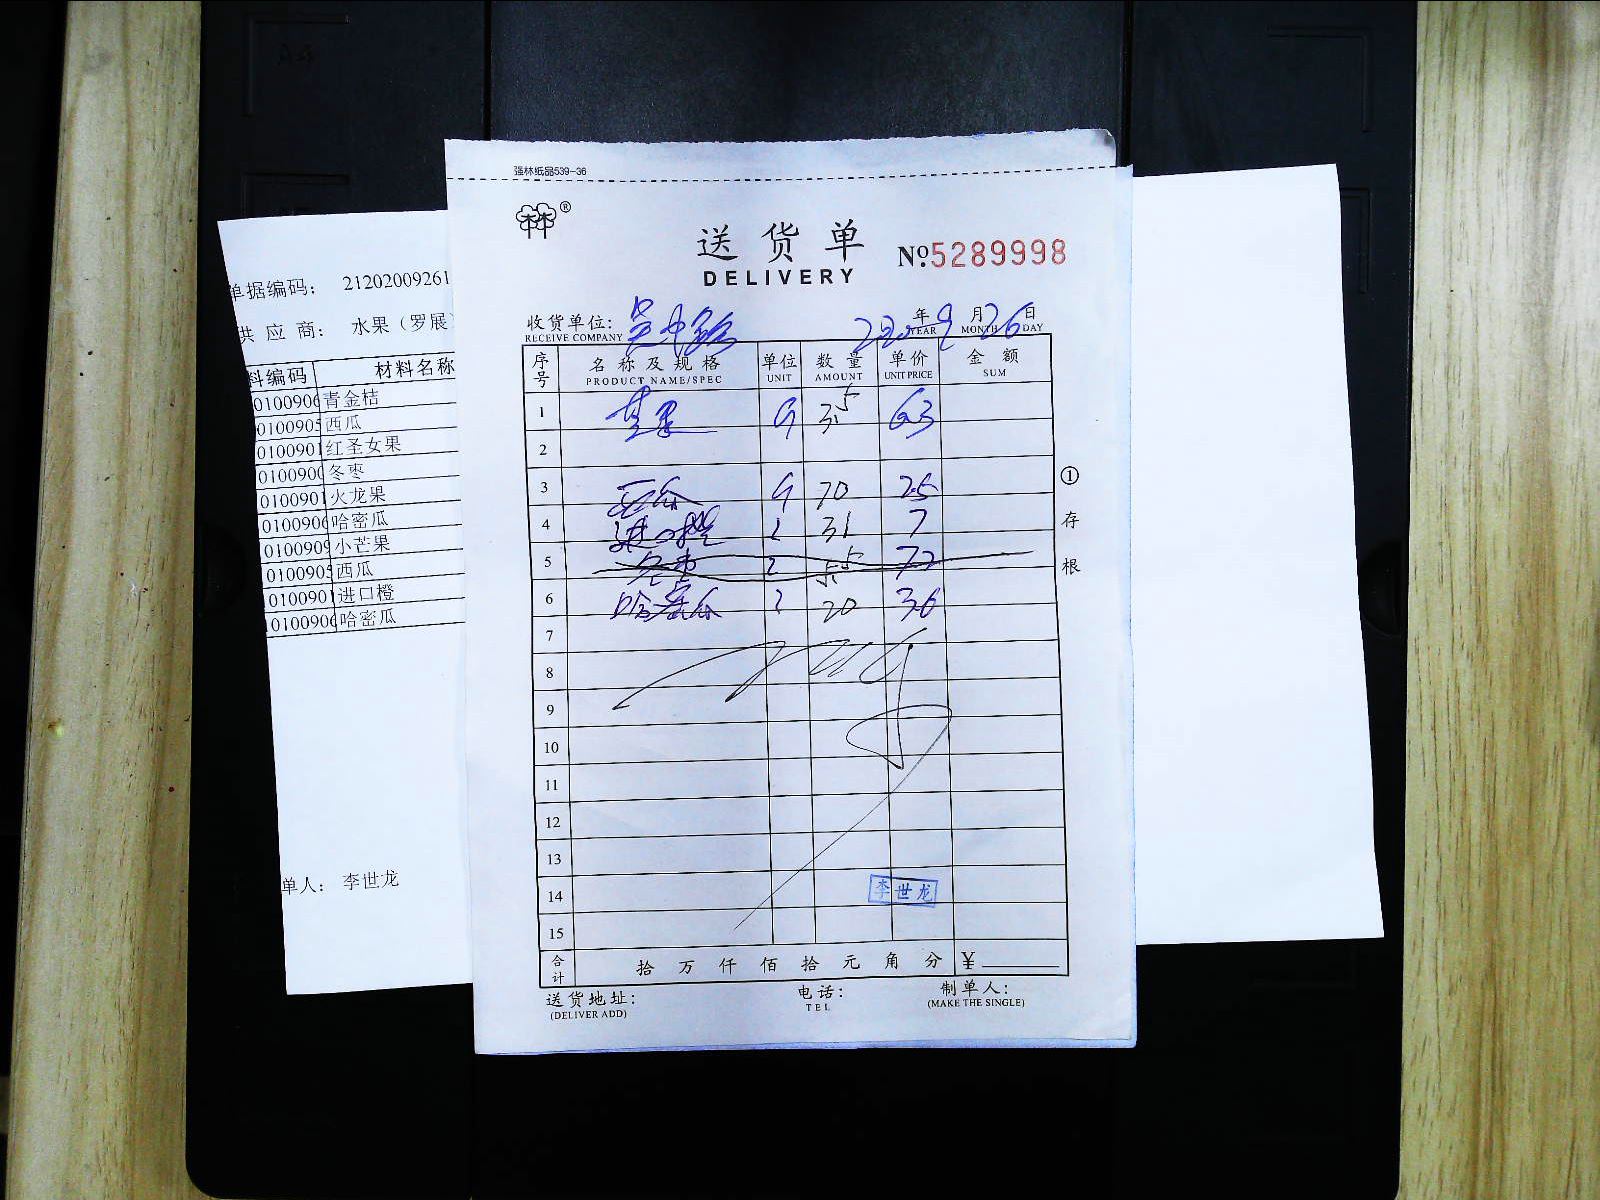 强林纸品539-36
®
送货单
DELIVERY
№5289998
收货单位:
RECEIVE COMPANY
2020年9月26日
YEAR MONTH DAY
序号 名称及规格 单位 数量 单价 金额
PRODUCT NAME/SPEC UNIT AMOUNT UNIT PRICE SUM
1 63
2
3 西瓜 70 25
4 进口橙 2 31 7
5 冬枣 2 5.5 72
6 哈密瓜 2 20 36
7
8
9
10
11
12
13
14
15
李世龙
合计 拾 万 仟 佰 拾 元 角 分 ¥
送货地址:
(DELIVER ADD)
电话:
TEL
制单人:
(MAKE THE SINGLE)
①存根
单据编码: 21202009261
供应商: 水果(罗展
料编码 材料名称
0100906 青金桔
0100905 西瓜
0100901 红圣女果
0100900 冬枣
0100901 火龙果
0100906 哈密瓜
0100909 小芒果
0100905 西瓜
0100901 进口橙
0100906 哈密瓜
单人: 李世龙